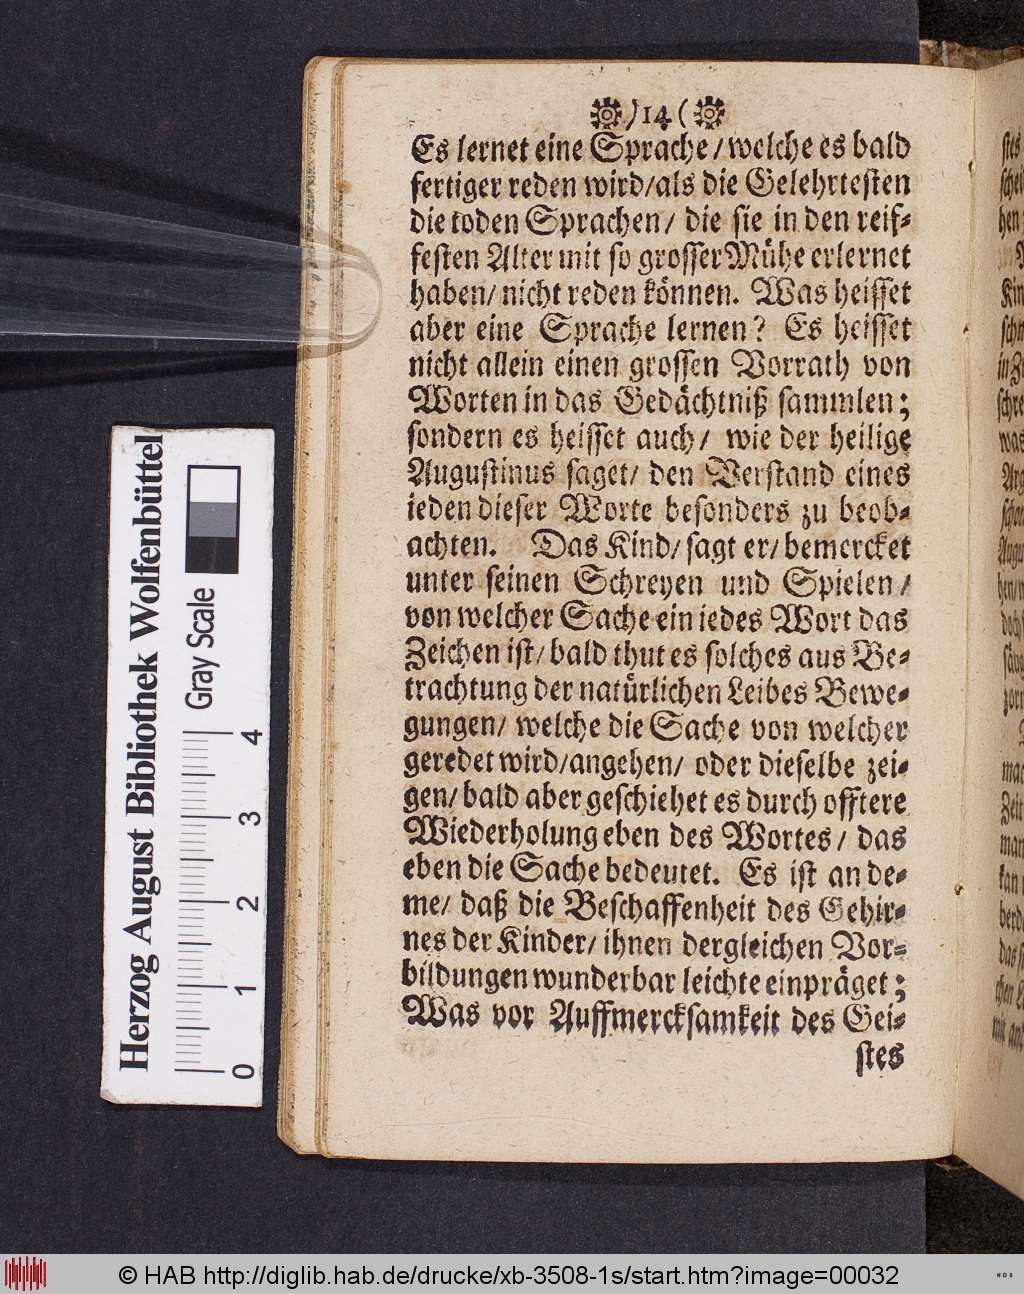 )14(
Es lernet eine Sprache/welche es bald
fertiger reden wird/als die Gelehrtesten
die toden Sprachen/ die sie in den reif-
festen Alter mit so grosser Mühe erlernet
haben/ nicht reden können. Was heisset
aber eine Sprache lernen? Es heisset
nicht allein einen grossen Vorrath von
Worten in das Gedächtniß sammlen;
sondern es heisset auch/ wie der heilige
Augustinus saget/ den Verstand eines
ieden dieser Worte besonders zu beob-
achten. Das Kind/ sagt er/ bemercket
unter seinen Schreyen und Spielen/
von welcher Sache ein iedes Wort das
Zeichen ist/ bald thut es solches aus Be-
trachtung der natürlichen Leibes Bewe-
gungen/ welche die Sache von welcher
geredet wird/angehen/ oder dieselbe zei-
gen/ bald aber geschiehet es durch offtere
Wiederholung eben des Wortes/ das
eben die Sache bedeutet. Es ist an de-
me/ daß die Beschaffenheit des Gehir-
nes der Kinder/ ihnen dergleichen Vor-
bildungen wunderbar leichte einpräget;
Was vor Auffmercksamkeit des Gei-
stes
Herzog August Bibliothek Wolfenbüttel
Gray Scale
0 1 2 3 4
© HAB http://diglib.hab.de/drucke/xb-3508-1s/start.htm?image=00032